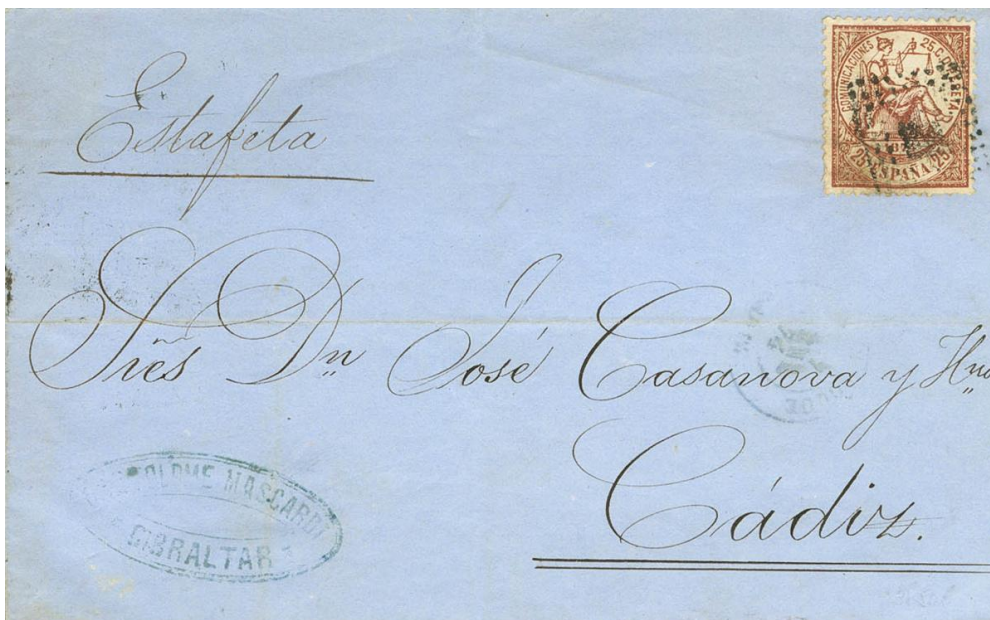 Estafeta
COMUNICACIONES 25 C. DE PESETA
25 ESPAÑA 25
Sres Dn José Casanova y Hno
Cádiz.
MASCARDI
GIBRALTAR